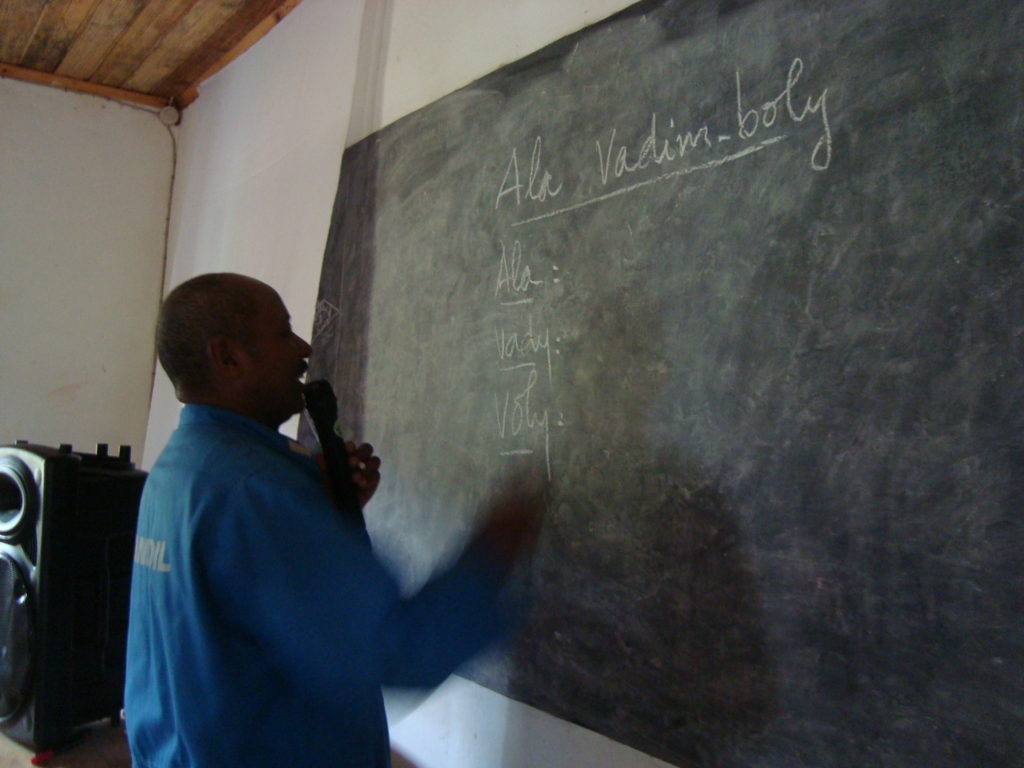 Ala Vadim-boly
Ala :
vady :
Voly :